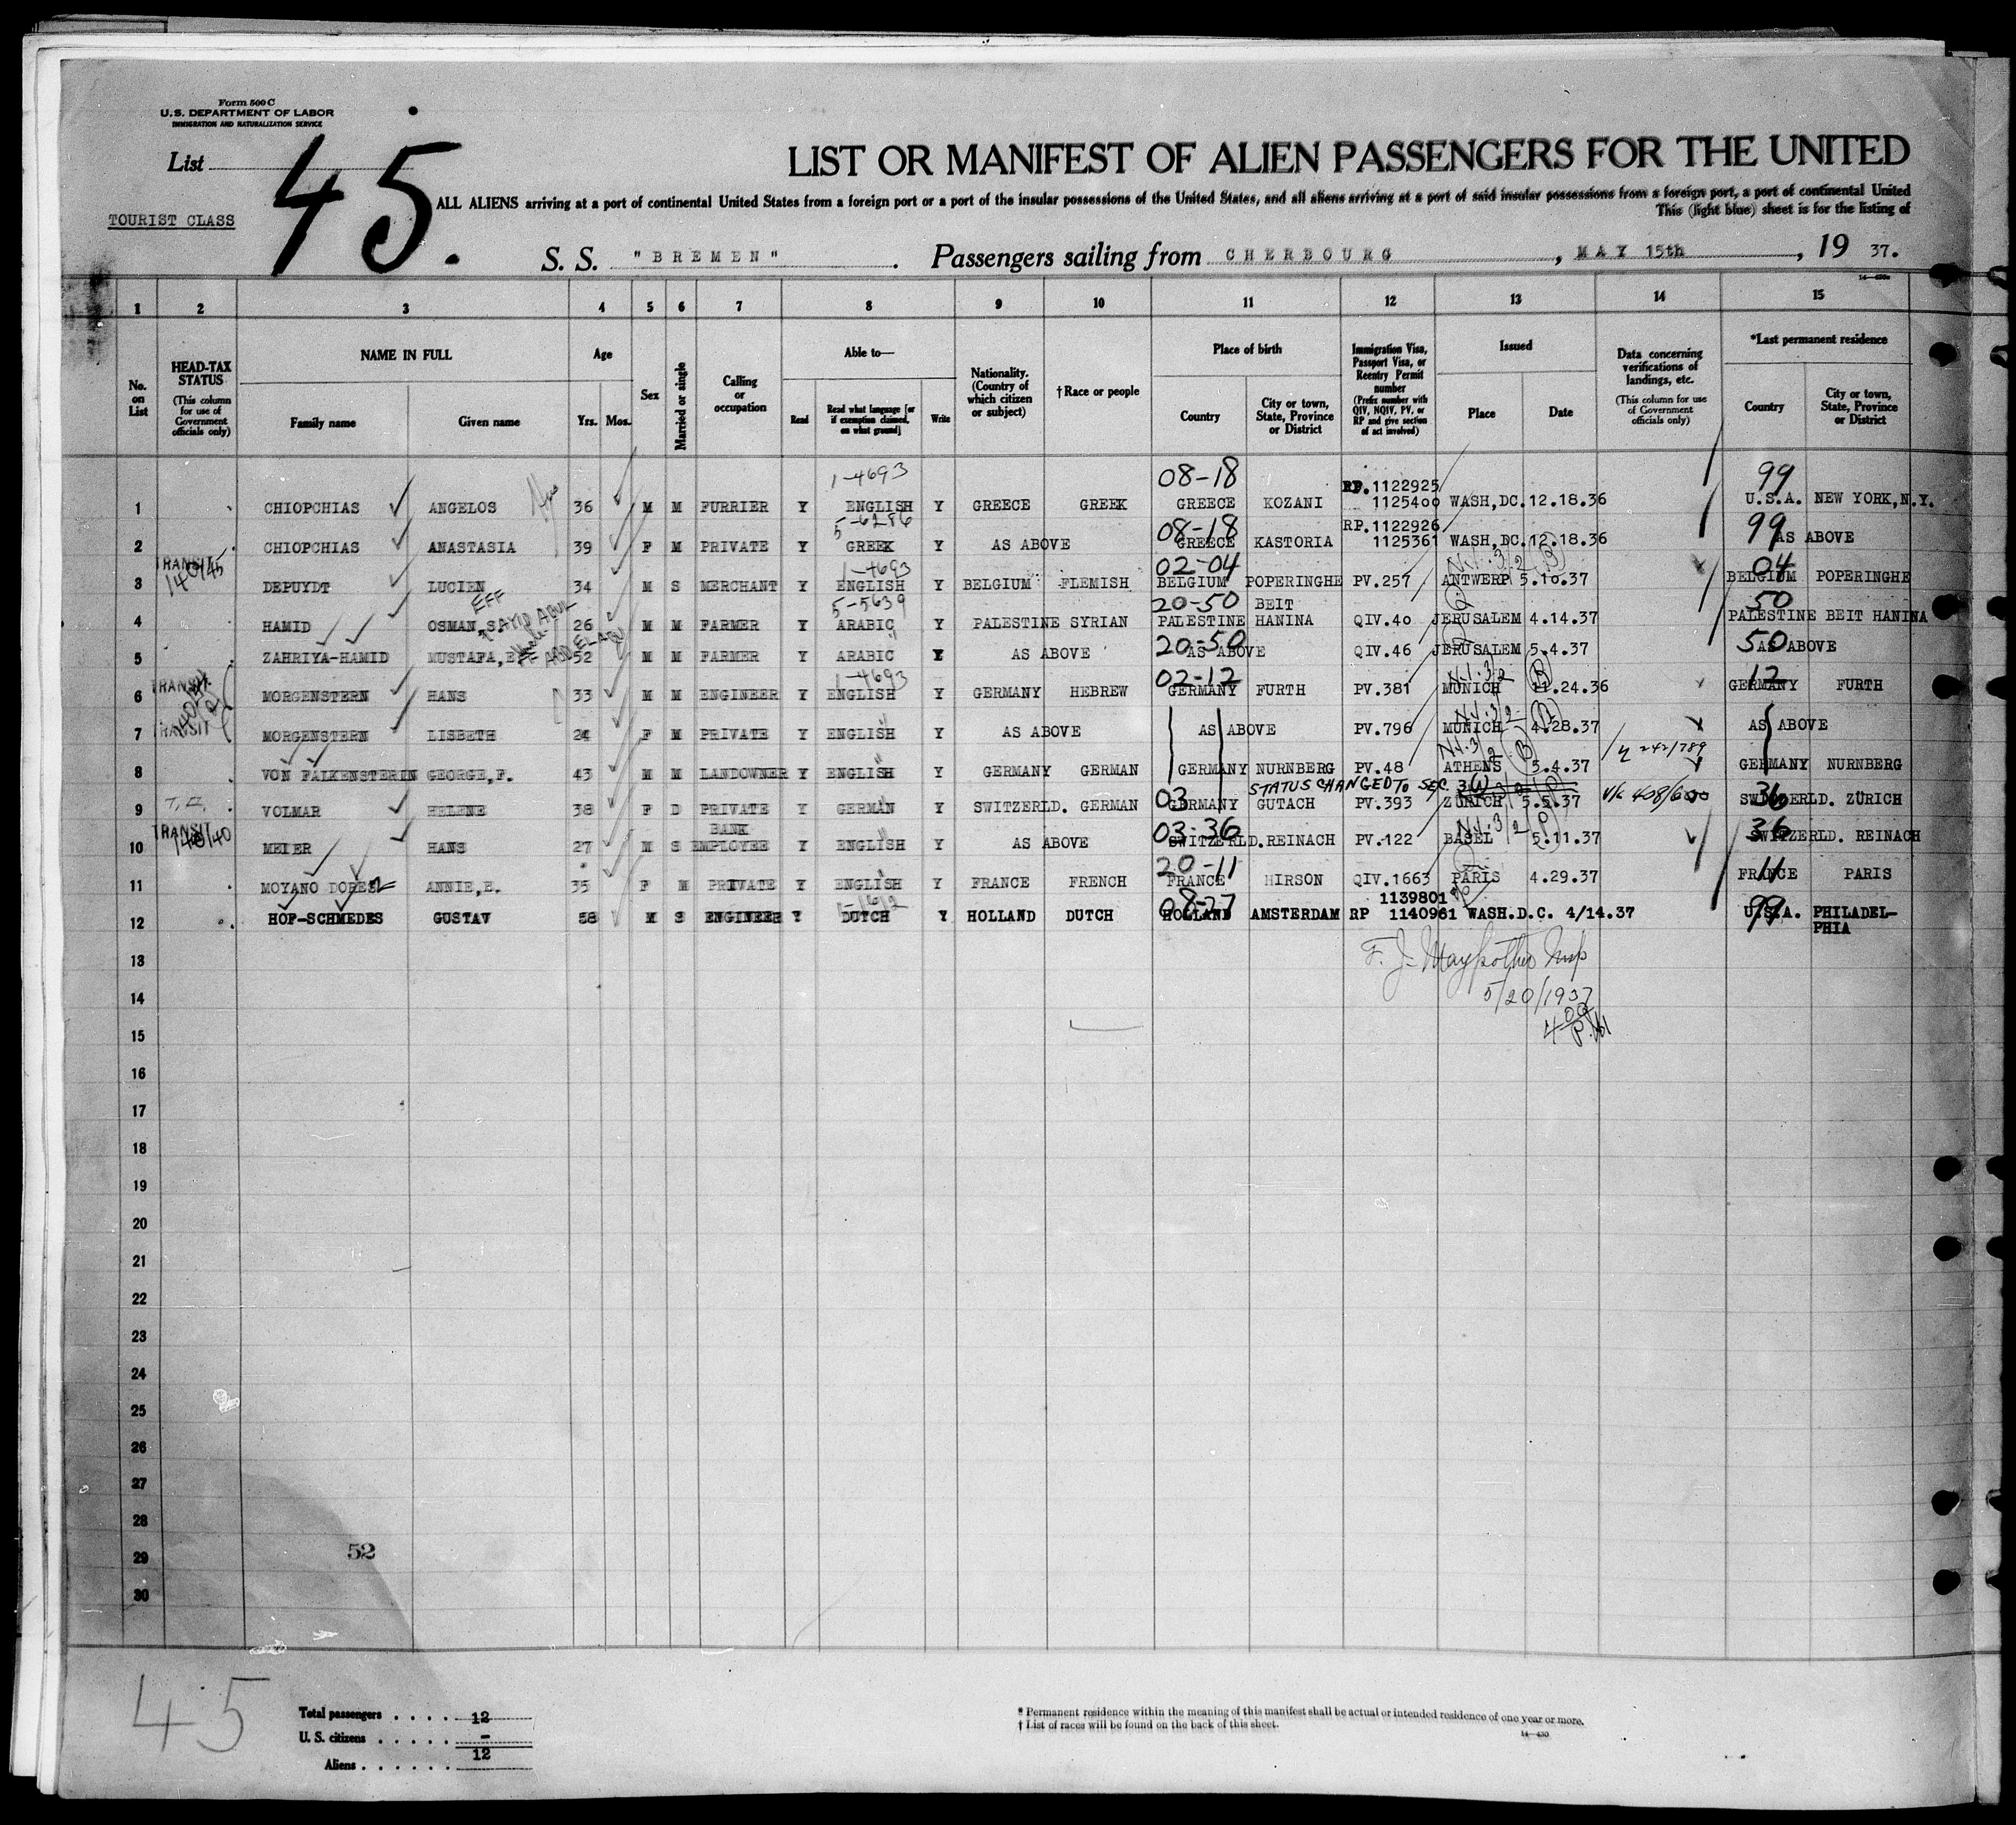 Form 500 C
U.S. DEPARTMENT OF LABOR
IMMIGRATION AND NATURALIZATION SERVICE
List 45.
TOURIST CLASS
LIST OR MANIFEST OF ALIEN PASSENGERS FOR THE UNITED
ALL ALIENS arriving at a port of continental United States from a foreign port or a port of the insular possessions of the United States, and all aliens arriving at a port of said insular possessions from a foreign port, a port of continental United
This (light blue) sheet is for the listing of
S. S. "BREMEN". Passengers sailing from CHERBOURG, MAY 15th, 19 37.
14—430a
1 2 3 4 5 6 7 8 9 10 11 12 13 14 15
No. on List
HEAD-TAX STATUS (This column for use of Government officials only)
NAME IN FULL
Family name Given name
Age
Yrs. Mos.
Sex
Married or single
Calling or occupation
Able to—
Read Read what language [or if exemption claimed, on what ground] Write
Nationality. (Country of which citizen or subject)
† Race or people
Place of birth
Country City or town, State, Province or District
Immigration Visa, Passport Visa, or Reentry Permit number (Prefix number with QIV, NQIV, PV, or RP and give section of act involved)
Issued
Place Date
Data concerning verifications of landings, etc. (This column for use of Government officials only)
*Last permanent residence
Country City or town, State, Province or District
1-4693 08-18 RP.1122925 99
1 CHIOPCHIAS ANGELOS 36 M M FURRIER Y ENGLISH Y GREECE GREEK GREECE KOZANI 1125400 WASH,DC. 12.18.36 U.S.A. NEW YORK,N.Y.
5-6286 08-18 RP.1122926 99
2 CHIOPCHIAS ANASTASIA 39 F M PRIVATE Y GREEK Y AS ABOVE GREECE KASTORIA 1125361 WASH,DC. 12.18.36 AS ABOVE
TRANSIT 140/45 1-4693 02-04 N.I.3/2 (B) 04
3 DEPUYDT LUCIEN 34 M S MERCHANT Y ENGLISH Y BELGIUM FLEMISH BELGIUM POPERINGHE PV.257 ANTWERP 5.10.37 BELGIUM POPERINGHE
EFF 5-5639 20-50 BEIT Q 50
4 HAMID OSMAN,S. SAYID ABUL 26 M M FARMER Y ARABIC Y PALESTINE SYRIAN PALESTINE HANINA QIV.40 JERUSALEM 4.14.37 PALESTINE BEIT HANINA
20-50 50
5 ZAHRIYA-HAMID MUSTAFA,E 52 M M FARMER Y ARABIC Y AS ABOVE AS ABOVE QIV.46 JERUSALEM 5.4.37 AS ABOVE
TRANSIT 1-4693 02-12 N.I.3/2 (B) 12
6 MORGENSTERN HANS 33 M M ENGINEER Y ENGLISH Y GERMANY HEBREW GERMANY FURTH PV.381 MUNICH 11.24.36 GERMANY FURTH
TRANSIT N.I.3/2 (B)
7 MORGENSTERN LISBETH 24 F M PRIVATE Y ENGLISH Y AS ABOVE AS ABOVE PV.796 MUNICH 4.28.37 AS ABOVE
N.I.3/2 (B) 242/789
8 VON FALKENSTERIN GEORGE,F. 43 M M LANDOWNER Y ENGLISH Y GERMANY GERMAN GERMANY NURNBERG PV.48 ATHENS 5.4.37 GERMANY NURNBERG
03 STATUS CHANGED TO SEC. 36
9 VOLMAR HELENE 38 F D PRIVATE Y GERMAN Y SWITZERLD. GERMAN GERMANY GUTACH PV.393 ZURICH 5.5.37 SWITZERLD. ZÜRICH
TRANSIT BANK 03-36 N.I.3/2 (P) 36
10 MEIER HANS 27 M S EMPLOYEE Y ENGLISH Y AS ABOVE SWITZERLD. REINACH PV.122 BASEL 5.11.37 SWITZERLD. REINACH
20-11 11
11 MOYANO DORES ANNIE,E. 35 F M PRIVATE Y ENGLISH Y FRANCE FRENCH FRANCE HIRSON QIV.1663 PARIS 4.29.37 FRANCE PARIS
08-27 1139801 99
12 HOF-SCHMEDES GUSTAV 58 M S ENGINEER Y DUTCH Y HOLLAND DUTCH HOLLAND AMSTERDAM RP 1140961 WASH.D.C. 4/14.37 U.S.A. PHILADEL-
PHIA
13
14 5/20/1937
15
16
17
18
19
20
21
22
23
24
25
26
27
28
29 52
30
45
Total passengers . . . . 12
U. S. citizens . . . . . –
Aliens . . . . . . 12
* Permanent residence within the meaning of this manifest shall be actual or intended residence of one year or more.
† List of races will be found on the back of this sheet.
14—430